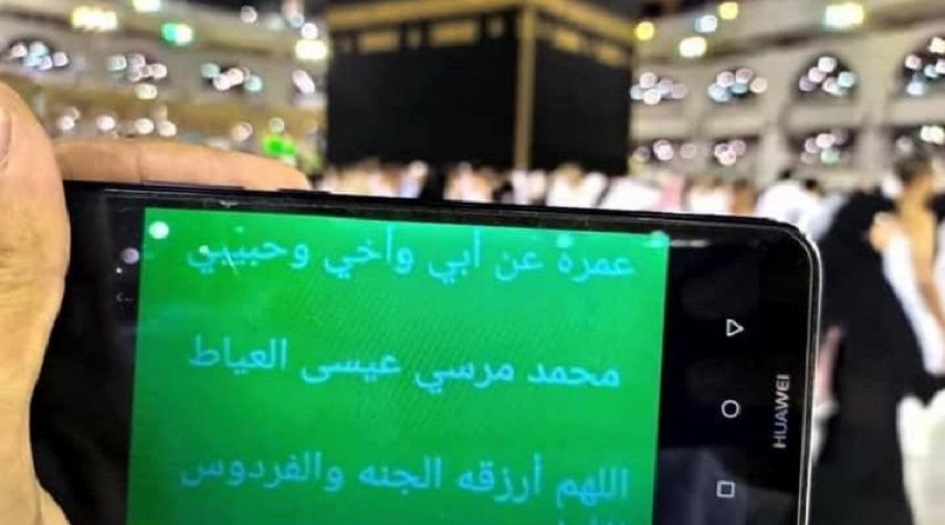 عمرة عن أبي وأخي وحبيبي
محمد مرسي عيسى العياط
اللهم أرزقه الجنه والفردوس
HUAWEI